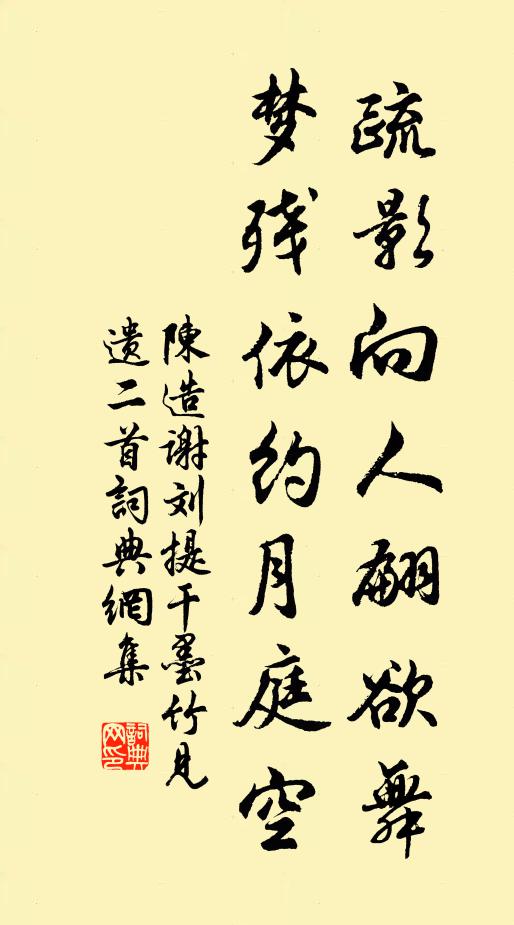 疏影向人翩欲舞
梦残依约月庭空
陳造谢刘提干墨竹見
遗二首詞典網集
詞典网印